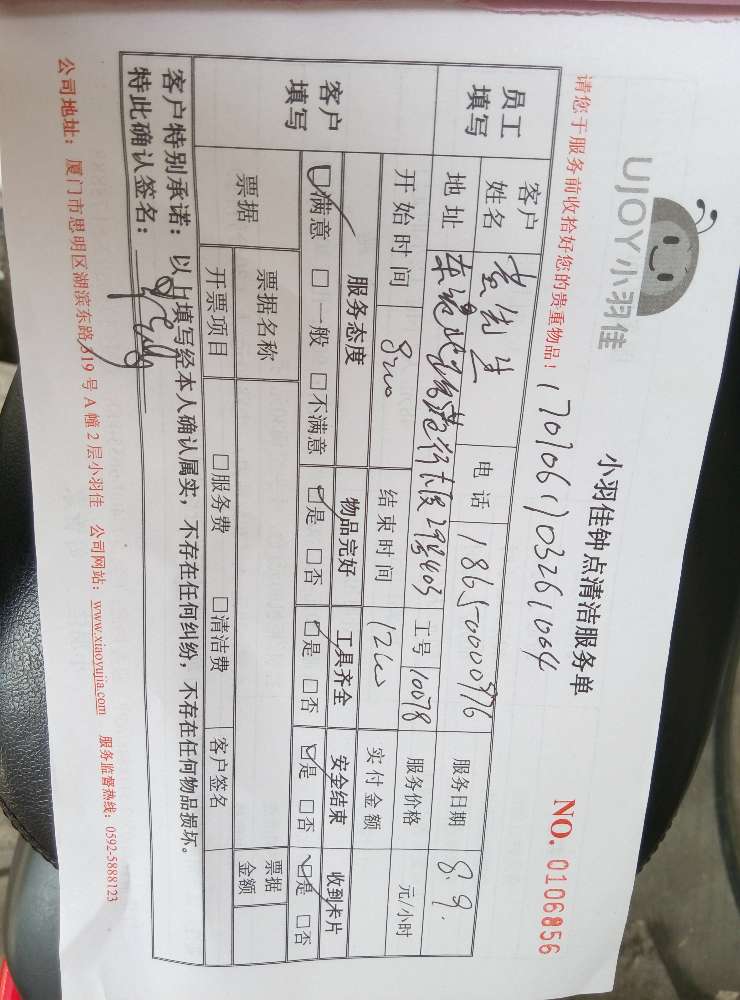 UJOY小羽佳
小羽佳钟点清洁服务单
NO. 0106856
请您于服务前收拾好您的贵重物品!
员工填写 客户姓名 黄先生 电话 服务日期 8.9.
地址 工号 10078 服务价格 元/小时
开始时间 结束时间 实付金额
客户填写 服务态度 物品完好 工具齐全 安全结束 收到卡片
☑满意 □一般 □不满意 ☑是 □否 ☑是 □否 ☑是 □否 ☑是 □否
票据 票据名称 票据金额
开票项目 □服务费 □清洁费 客户签名
客户特别承诺:以上填写经本人确认属实,不存在任何纠纷,不存在任何物品损坏。
特此确认签名:
公司地址:厦门市思明区湖滨东路319号A幢2层小羽佳 公司网站:www.xiaoyujia.com 服务监督热线:0592-5888123